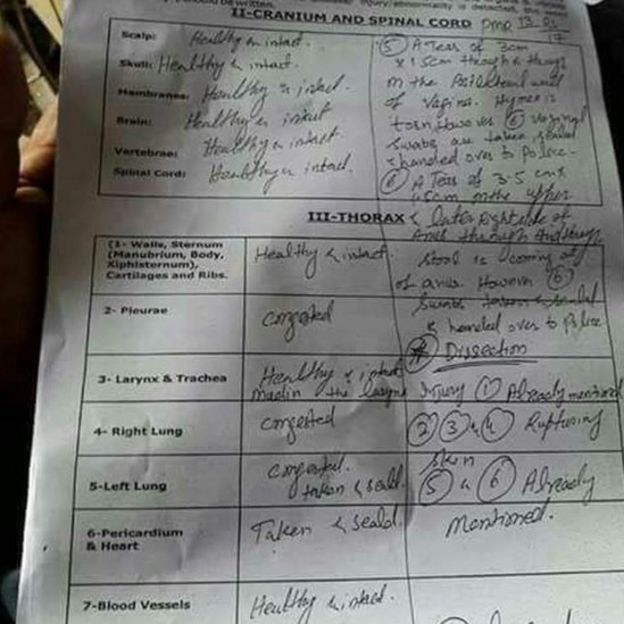 injury/abnormality is detected,
should be written.
II-CRANIUM AND SPINAL CORD pmp 13.
17
Scalp: Healthy & intact.
Skull: Healthy & intact.
Membranes: Healthy & intact.
Brain: Healthy & intact
Vertebrae: Healthy & intact.
Spinal Cord: Healthy & intact.
(5) A Tear of 3cm
x 1.5cm through & through
on the wall
of vagina. Hymen is
torn However (6) vaginal
Swabs are taken sealed
& handed over to Police.
(6) A Tear of 3.5 cm x
1.5cm on the upper
& later right side of
Anus through & through
Stool is coming of
of anus However (6)
Swabs taken & sealed
& handed over to Police
Dissection
III-THORAX
(1- Walls, Sternum
(Manubrium, Body,
Xiphisternum),
Cartilages and Ribs.
Healthy & intact
2- Pleurae
congested
3- Larynx & Trachea
Healthy & intact
the larynx
Injury (1) Already mentioned
4- Right Lung
congested
(2) (3) & (4) Rupturing
Skin
5-Left Lung
congested.
taken & seald.
(5) & (6) Already
mentioned.
6-Pericardium
& Heart
Taken & seald.
7-Blood Vessels
Healthy & intact.